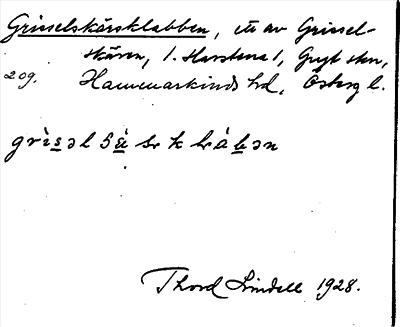 Grisselskärsklabben, en av Grissel-
skären, l. Harstena 1, Gryt skn,
209. Hammarkinds hd, Österg l.
grìsəl sk klàbən
Thord Lindell 1928.